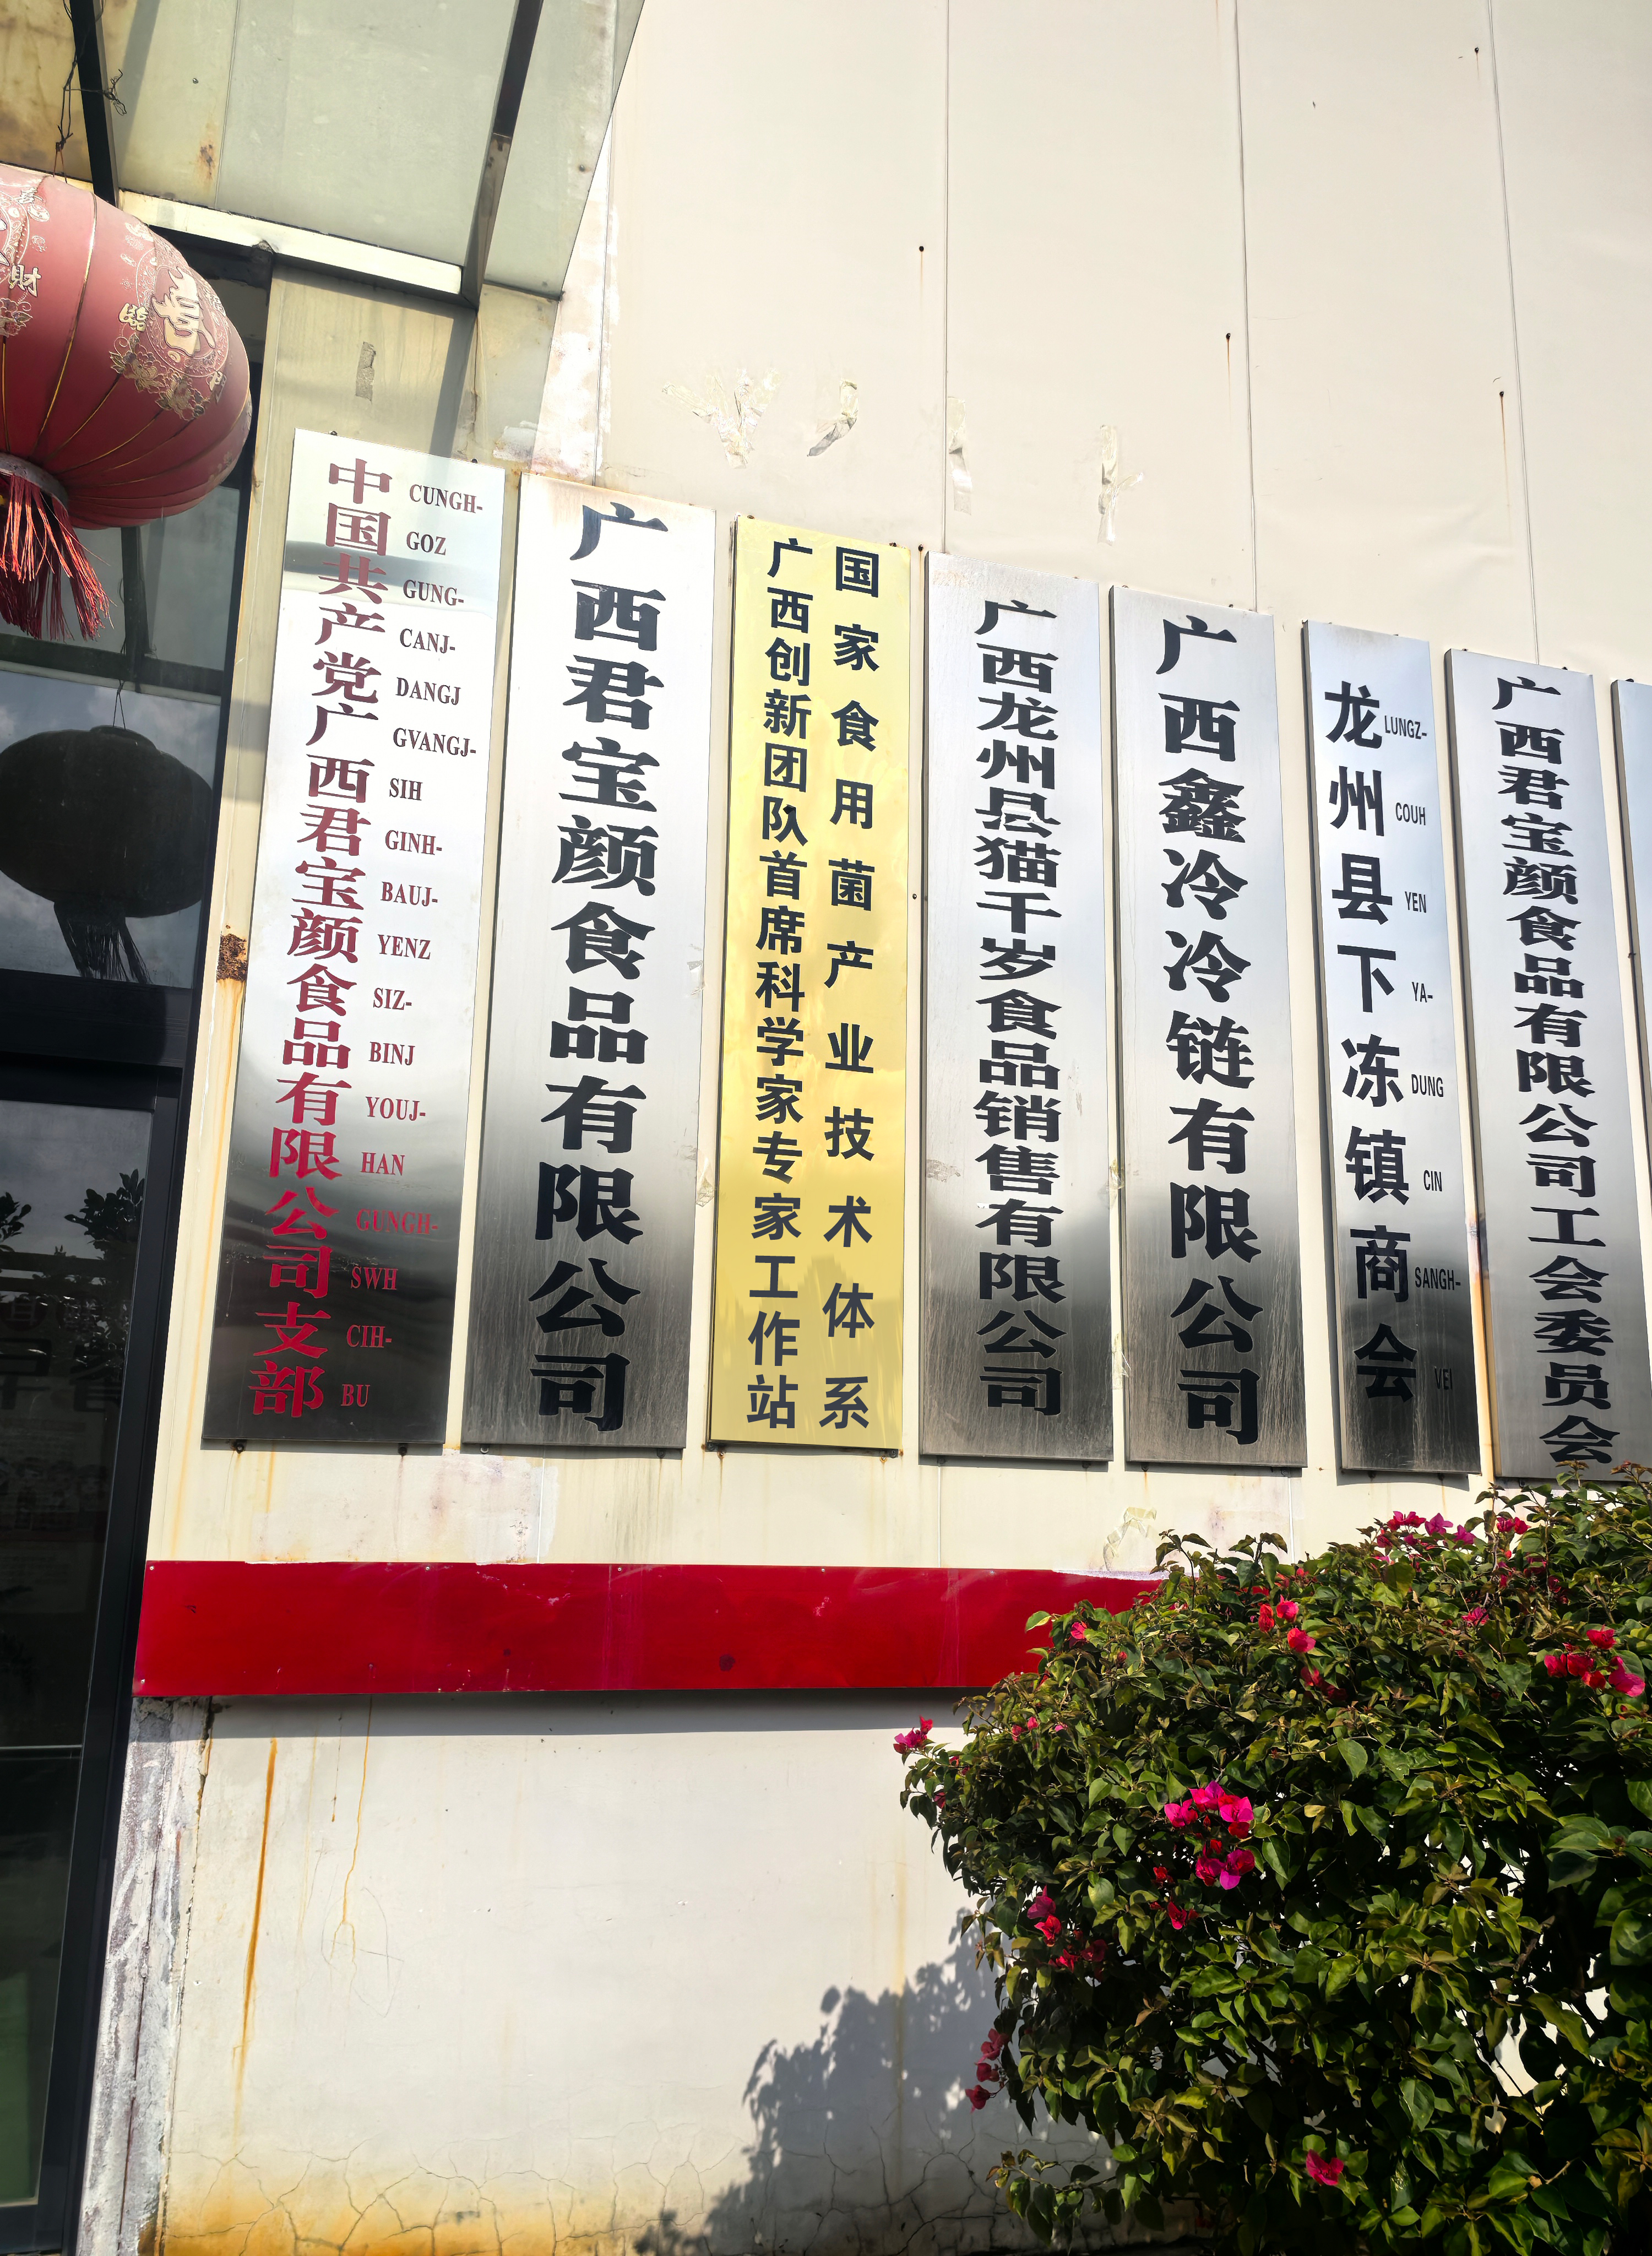 中国共产党广西君宝颜食品有限公司支部
CUNGH-
GOZ
GUNG-
CANJ-
DANGJ
GVANGJ-
SIH
GINH-
BAUJ-
YENZ
SIZ-
BINJ
YOUJ-
HAN
GUNGH-
SWH
CIH-
BU
广西君宝颜食品有限公司
国家食用菌产业技术体系
广西创新团队首席科学家专家工作站
广西龙州县猫千岁食品销售有限公司
广西鑫冷冷链有限公司
龙州县下冻镇商会
LUNGZ-
COUH
YEN
YA-
DUNG
CIN
SANGH-
VEI
广西君宝颜食品有限公司工会委员会
财